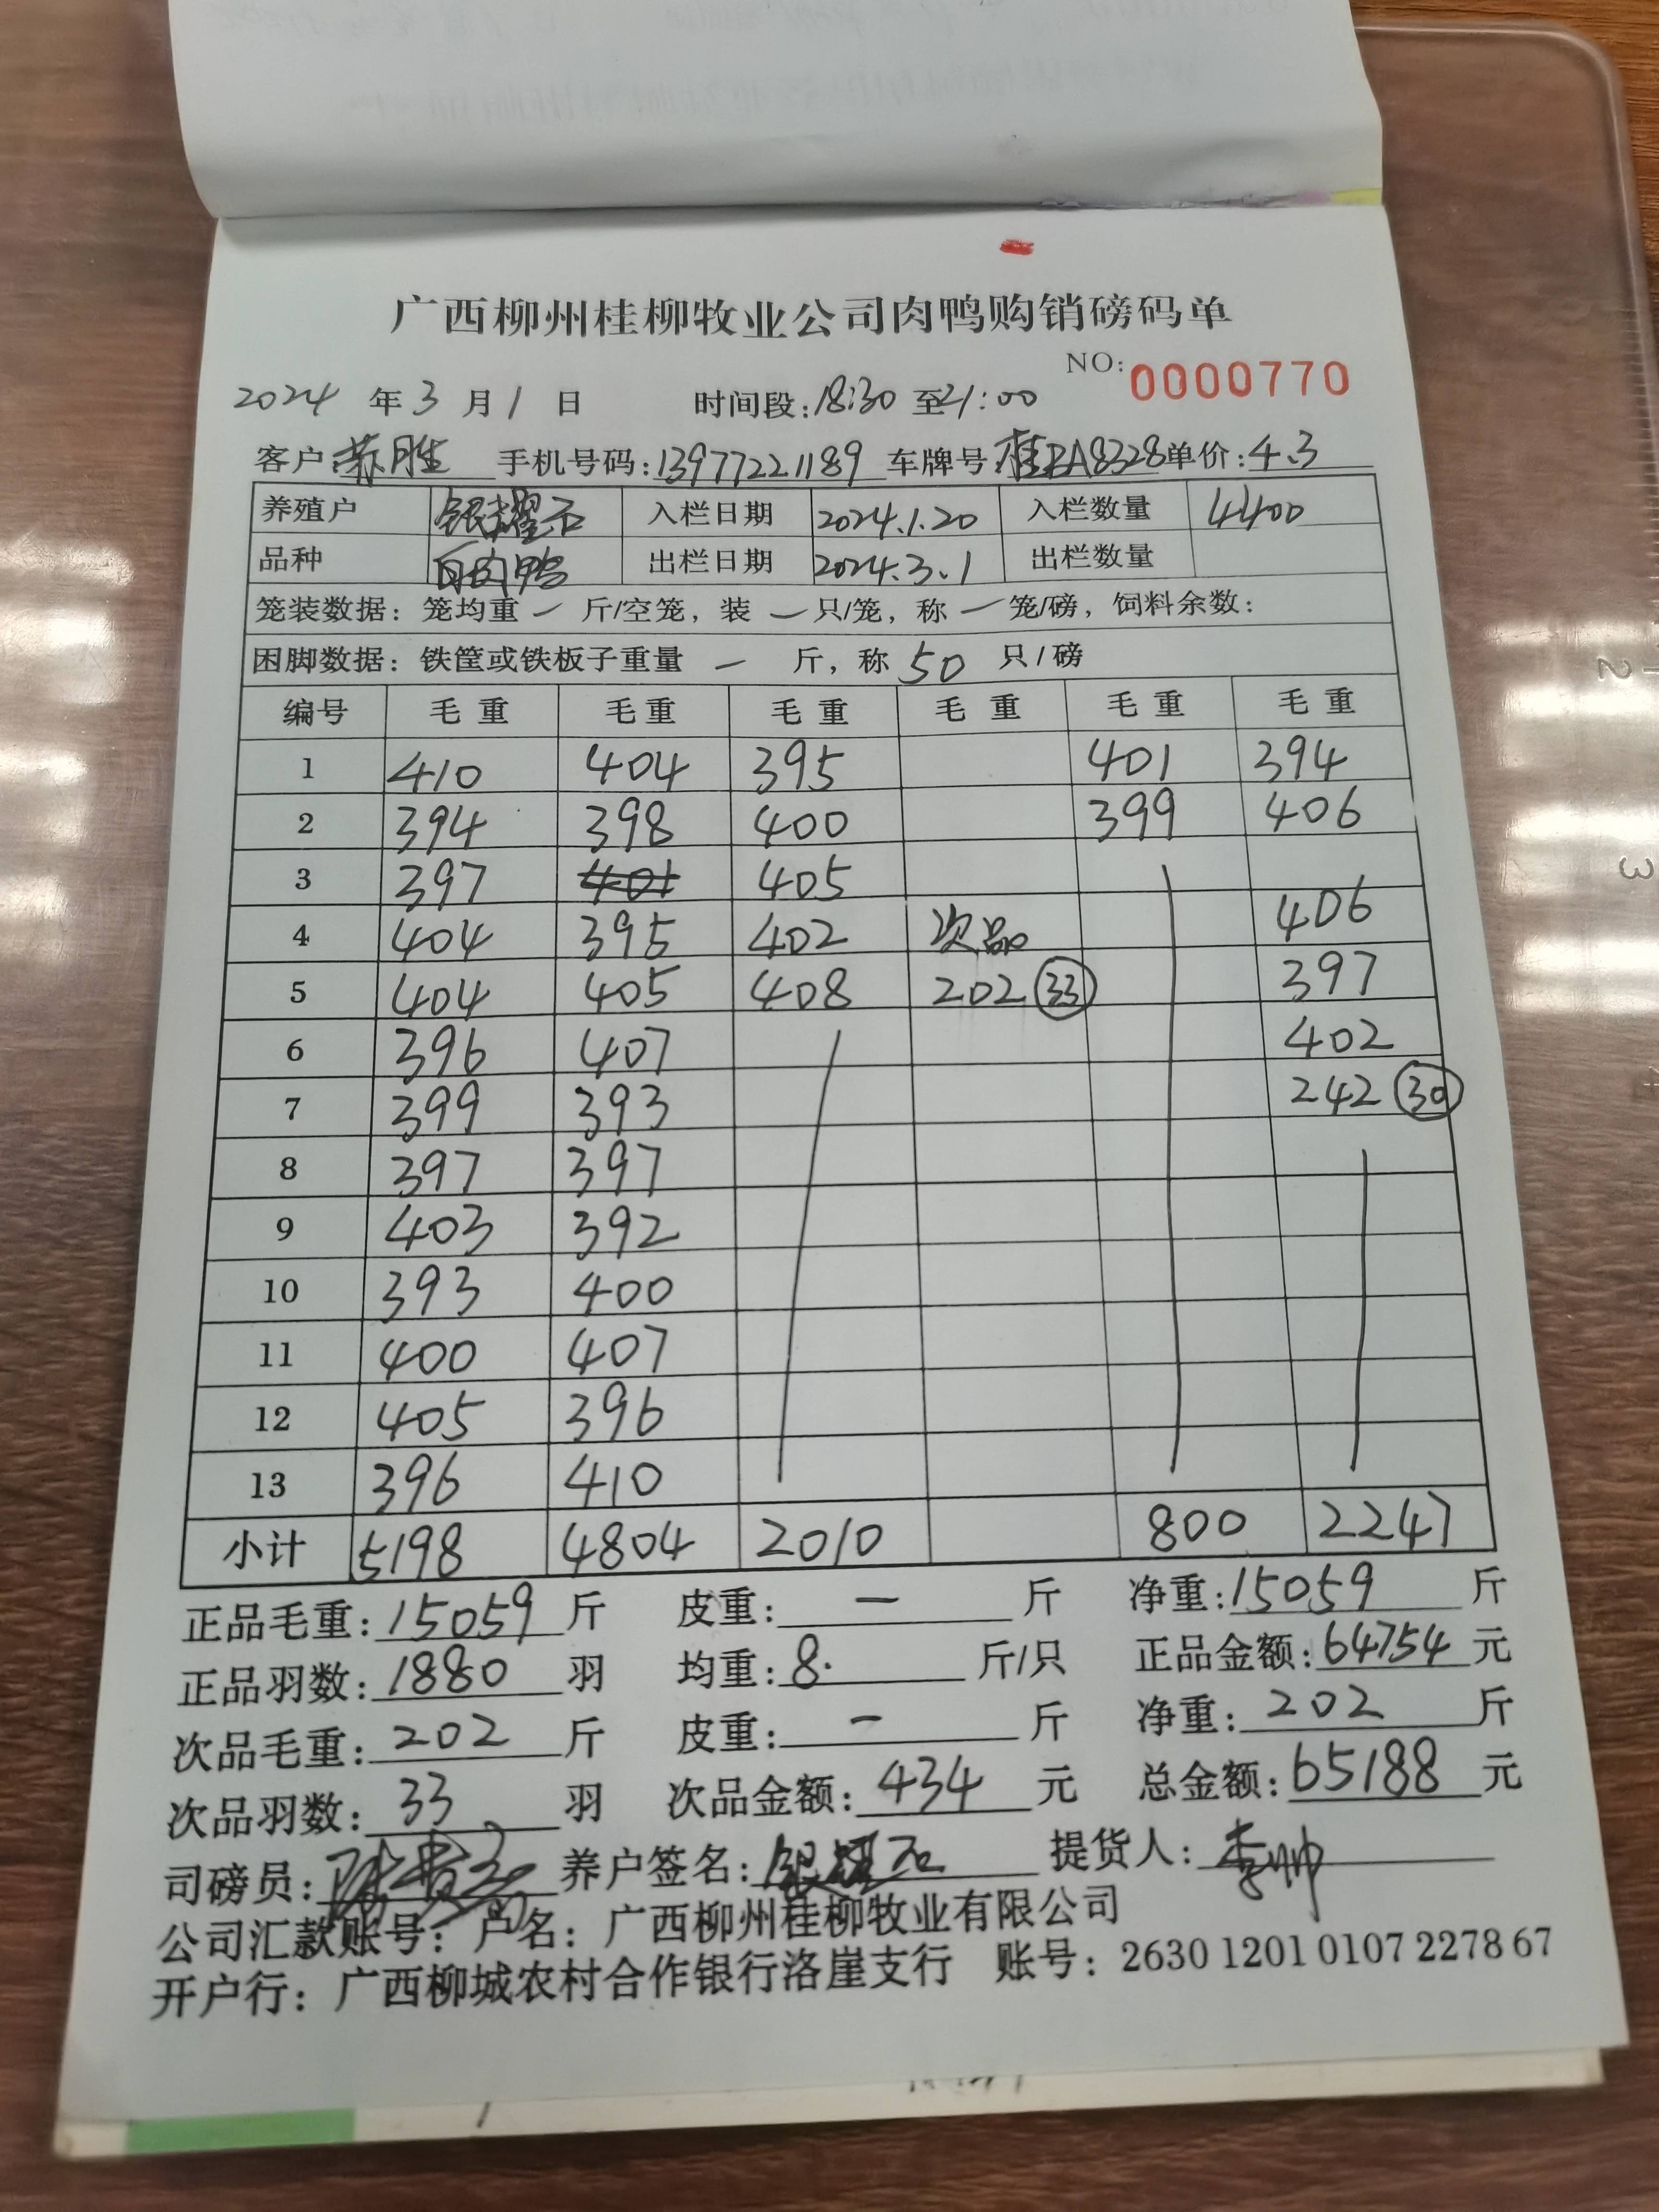 广西柳州桂柳牧业公司肉鸭购销磅码单
NO: 0000770
2024 年 3 月 1 日 时间段: 18:30 至 21:00
客户: 苏胜 手机号码: 13977221189 车牌号: 桂BA8328 单价: 4.3
养殖户 银耀石 入栏日期 2024.1.20 入栏数量 4400
品种 白肉鸭 出栏日期 2024.3.1 出栏数量
笼装数据: 笼均重 一 斤/空笼, 装 一 只/笼, 称 一 笼/磅, 饲料余数:
困脚数据: 铁筐或铁板子重量 一 斤, 称 50 只/磅
编号 毛重 毛重 毛重 毛重 毛重 毛重
1 410 404 395 401 394
2 394 398 400 399 406
3 397 401 405
4 404 395 402 次品 406
5 404 405 408 202 33 397
6 396 407 402
7 399 393 242 30
8 397 397
9 403 392
10 393 400
11 400 407
12 405 396
13 396 410
小计 5198 4804 2010 800 2247
正品毛重: 15059 斤 皮重: 一 斤 净重: 15059 斤
正品羽数: 1880 羽 均重: 8. 斤/只 正品金额: 64754 元
次品毛重: 202 斤 皮重: 一 斤 净重: 202 斤
次品羽数: 33 羽 次品金额: 434 元 总金额: 65188 元
司磅员: 养户签名: 银耀石 提货人: 李帅
公司汇款账号: 户名: 广西柳州桂柳牧业有限公司
开户行: 广西柳城农村合作银行洛崖支行 账号: 2630 1201 0107 2278 67